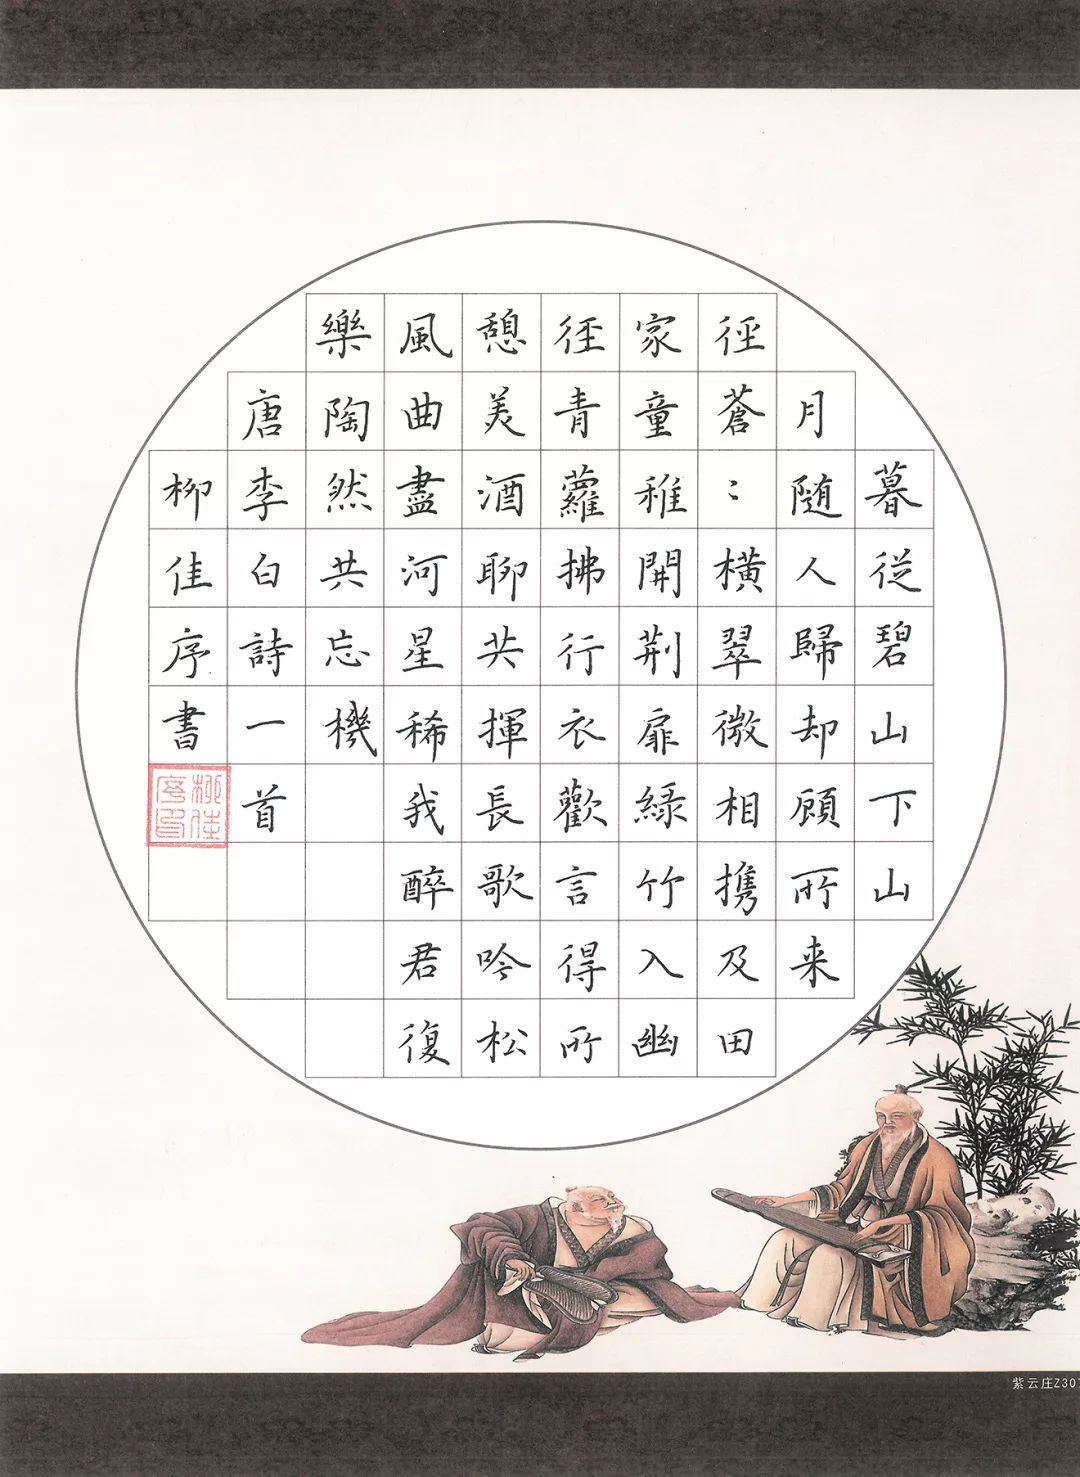 暮從碧山下山
月随人歸却顧所来
徑蒼：橫翠微相携及田
家童稚開荆扉緑竹入幽
徑青蘿拂行衣歡言得所
憩美酒聊共揮長歌吟松
風曲盡河星稀我醉君復
樂陶然共忘機
唐李白詩一首
柳佳序書
柳佳序印
紫云庄Z307